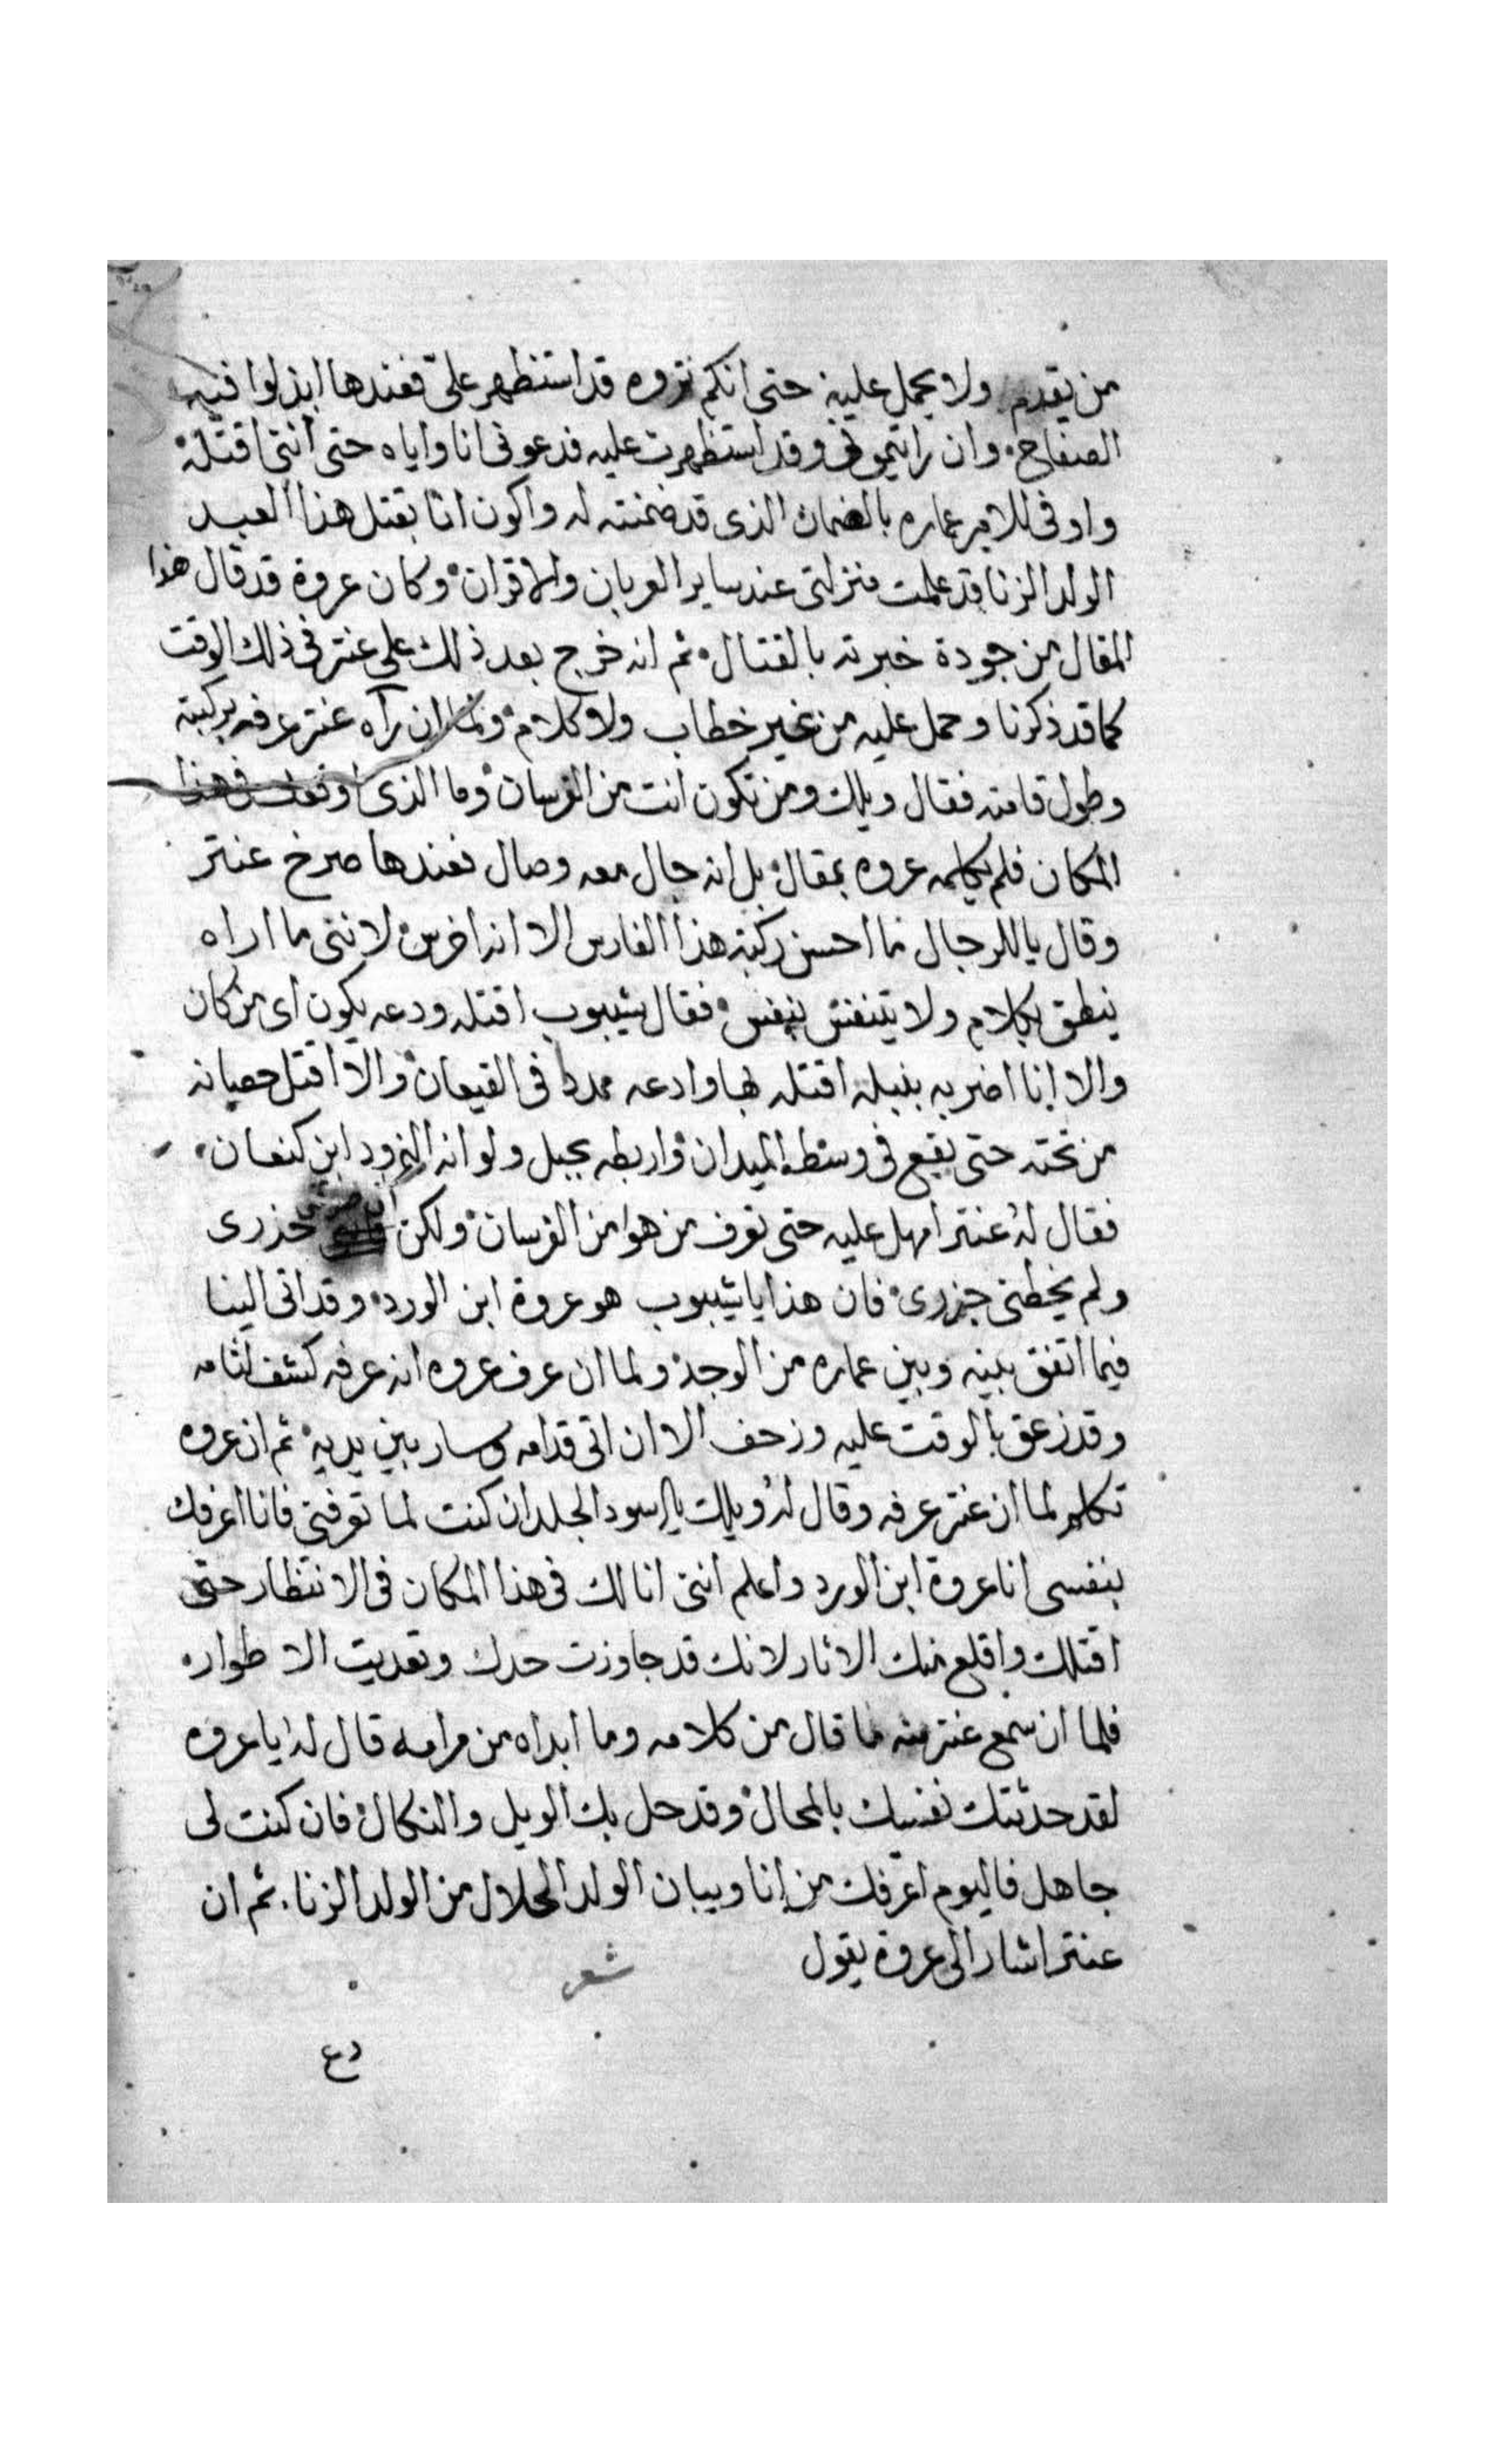 من يتقدم ولا يحمل عليه حتى انكم تروه قد استظهر علىّ فعندها ابذلوا فيه
الصفاح وان رايتمونى وقد استظهرت عليه فدعونى انا واياه حتى اننى اقتله
واوفى للامير عماره بالضمان الذى قد ضمنته له واكون انا بقتل هذا العبد
الولد الزنا قد علمت منزلتى عند ساير العربان والاقران وكان عروة قد قال هذا
المقال من جودة خبرته بالقتال ثم انه خرج بعد ذلك على عنتر فى ذلك الوقت
كما قد ذكرنا وحمل عليه من غير خطاب ولا كلام ولما ان رآه عنتر عرفه بركبته
وطول قامته فقال ويلك ومن تكون انت من الفرسان وما الذى اوقفك فى هذا
المكان فلم يكلمه عروه بمقال بل انه جال معه وصال فعندها صرخ عنتر
وقال ياللرجال ما احسن ركبة هذا الفارس الا انه اخرس لاننى ما اراه
ينطق بكلام ولا يتنفس بنفس فقال شيبوب اقتله ودعه يكون اى من كان
والا انا اضربه بنبله اقتله بها وادعه ممددا فى القيعان والا اقتل حصانه
من تحته حتى يقع فى وسط الميدان واربطه بحبل ولو انه النمرود ابن كنعان
فقال له عنتر امهل عليه حتى نعرف من هوا من الفرسان ولكن حذرى
ولم يخطنى حزرى فان هذا يا شيبوب هو عروة ابن الورد وقد اتى الينا
فيما اتفق بينه وبين عماره من الوجد ولما ان عرف عروه انه عرفه كشف لثامه
وقد زعق بالوقت عليه وزحف الا ان اتى قدامه وسار بين يديه ثم ان عروه
تكلم لما ان عنتر عرفه وقال له ويلك يا اسود الجلد ان كنت لما تعرفنى فانا اعرفك
بنفسى انا عروة ابن الورد واعلم اننى انا لك فى هذا المكان فى الانتظار حتى
اقتلك واقلع منك الاثار لانك قد جاوزت حدك وتعديت الاطوار
فلما ان سمع عنتر منه ما قال من كلامه وما ابداه من مرامه قال له يا عروه
لقد حدثتك نفسك بالمحال وقد حل بك الويل والنكال فان كنت لى
جاهل فاليوم اعرفك من انا ويبان الولد الحلال من الولد الزنا ثم ان
عنتر اشار الى عروة يقول شعر
دع